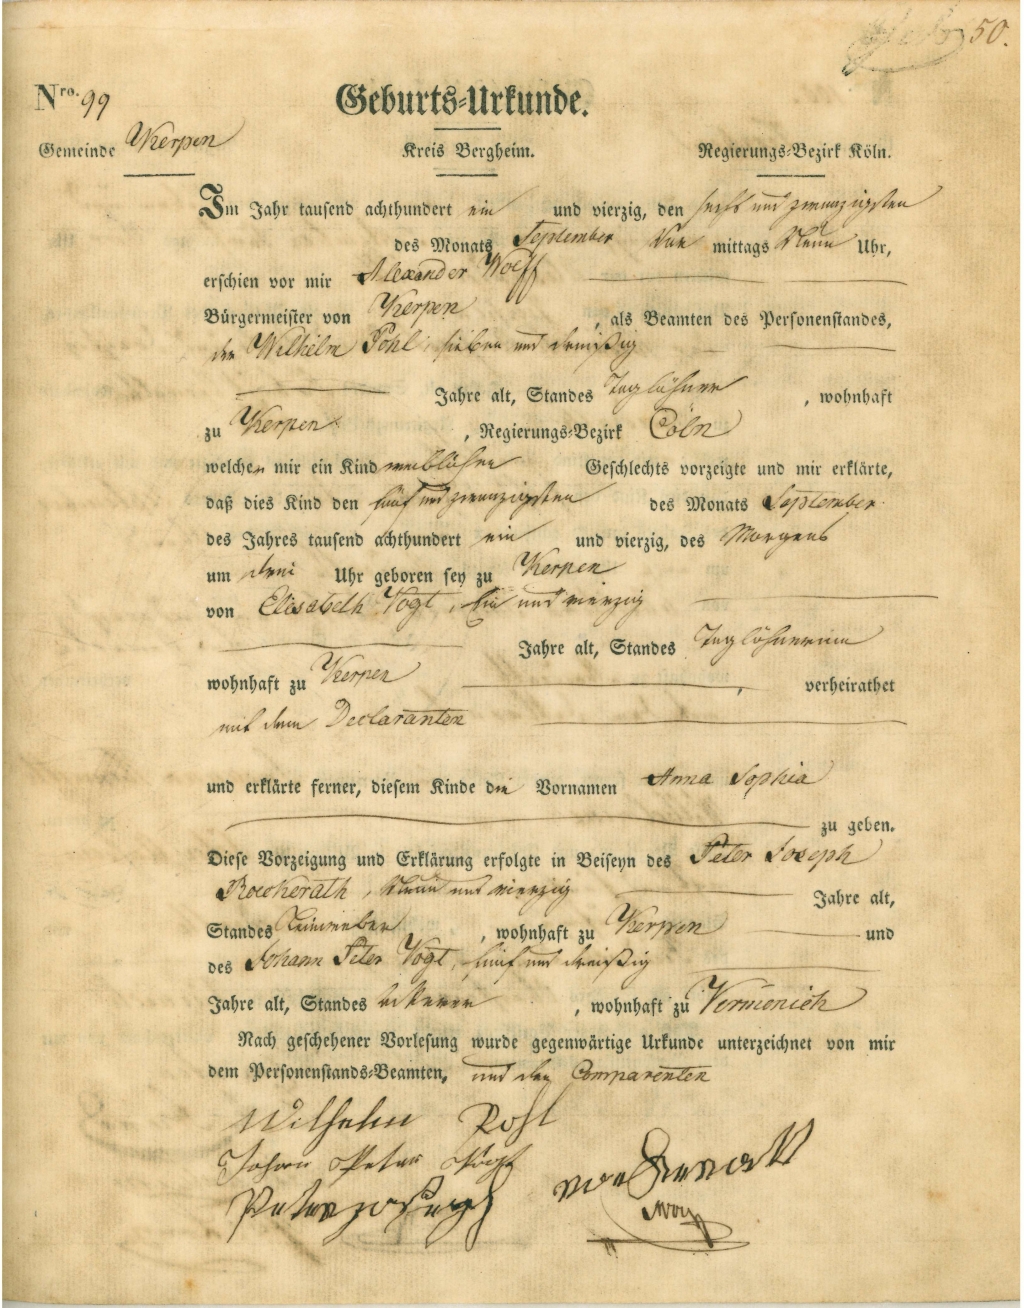 50.
Nro. 99
Geburts-Urkunde.
Gemeinde Kerpen Kreis Bergheim. Regierungs-Bezirk Köln.
Im Jahr tausend achthundert ein und vierzig, den sechs und zwanzigsten
des Monats September Vor mittags Neun Uhr,
erschien vor mir Alexander Wolff
Bürgermeister von Kerpen, als Beamten des Personenstandes,
der Wilhelm Pohl, sieben und dreißig
Jahre alt, Standes Taglöhner, wohnhaft
zu Kerpen, Regierungs-Bezirk Cöln
welcher mir ein Kind weiblichen Geschlechts vorzeigte und mir erklärte,
daß dies Kind den fünf und zwanzigsten des Monats September
des Jahres tausend achthundert ein und vierzig, des Morgens
um drei Uhr geboren sey zu Kerpen
von Elisabeth Vogt, Ein und vierzig
Jahre alt, Standes Taglöhnerinn
wohnhaft zu Kerpen, verheirathet
mit dem Declaranten
und erklärte ferner, diesem Kinde die Vornamen Anna Sophia
zu geben.
Diese Vorzeigung und Erklärung erfolgte in Beiseyn des Peter Joseph
Rockerath, Neun und vierzig Jahre alt,
Standes Leinweber, wohnhaft zu Kerpen und
des Johann Peter Vogt, fünf und dreißig
Jahre alt, Standes Ackerer, wohnhaft zu Vernich
Nach geschehener Vorlesung wurde gegenwärtige Urkunde unterzeichnet von mir
dem Personenstands-Beamten, und den Comparenten
Wilhelm Pohl
Johan Peter Vogt
Peter joseph
Wolff